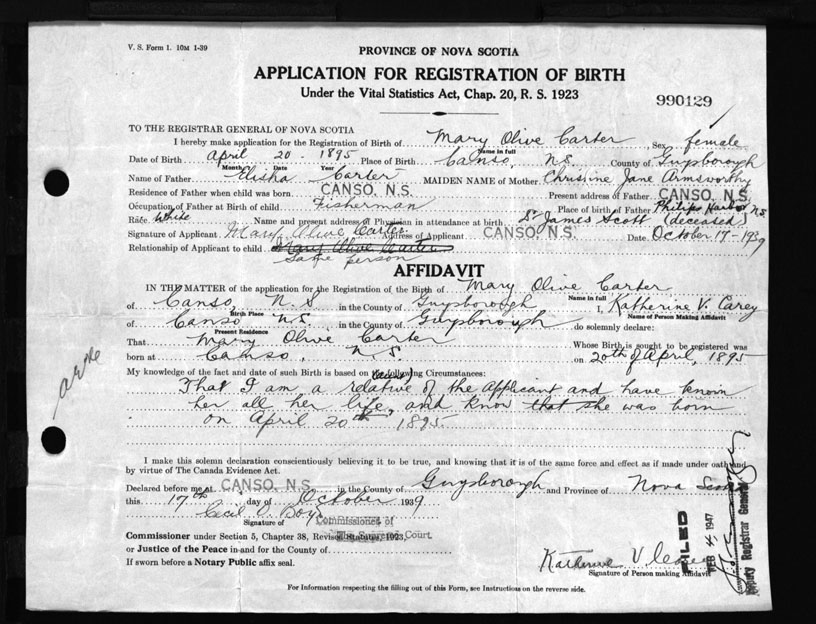 V. S. Form 1. 10M 1-39
PROVINCE OF NOVA SCOTIA
APPLICATION FOR REGISTRATION OF BIRTH
Under the Vital Statistics Act, Chap. 20, R. S. 1923
990129
TO THE REGISTRAR GENERAL OF NOVA SCOTIA
I hereby make application for the Registration of Birth of Mary Olive Carter Sex female
Name in full
Date of Birth April 20 - 1895 Place of Birth Canso, N.S. County of Guysborough
Month Date Year
Name of Father Elisha Carter MAIDEN NAME of Mother Christine Jane Armsworthy
Residence of Father when child was born CANSO, N.S. Present address of Father CANSO, N.S.
Occupation of Father at Birth of child Fisherman Place of birth of Father Philips Harbor N.S.
Race White Name and present address of Physician in attendance at birth Dr James Scott (deceased)
Signature of Applicant Mary Olive Carter Address of Applicant CANSO, N.S. Date October 17 - 1939
Relationship of Applicant to child Mary Olive Carter
Same person
AFFIDAVIT
IN THE MATTER of the application for the Registration of the Birth of Mary Olive Carter
Name in full
of Canso, N.S in the County of Guysborough I, Katherine V. Carey
Birth Place Name of Person Making Affidavit
of Canso N.S. in the County of Guysborough do solemnly declare:
Present Residence
That Mary Olive Carter Whose Birth is sought to be registered was
born at Canso, N.S. on 20th of April, 1895
My knowledge of the fact and date of such Birth is based on the following Circumstances:
That I am a relative of the applicant and have known
her all her life, and know that she was born
on April 20th 1895.
I make this solemn declaration conscientiously believing it to be true, and knowing that it is of the same force and effect as if made under oath and
by virtue of The Canada Evidence Act.
Declared before me at CANSO, N.S. in the County of Guysborough and Province of Nova
this 17th day of October 1939
Cecil O Boyd
Signature of Commissioner of
Commissioner under Section 5, Chapter 38, Revised Statutes, 1923, Court
or Justice of the Peace in and for the County of
If sworn before a Notary Public affix seal.
Katherine V Carey
Signature of Person making Affidavit
FILED
FEB 4 1947
Deputy Registrar General
For Information respecting the filling out of this Form, see Instructions on the reverse side.